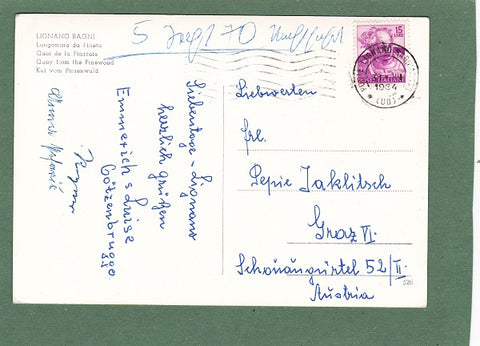 LIGNANO BAGNI
Lungomare da Pineta
Quai de la Pinerata
Quay from the Pinewood
Kai vom Pinienwald
5
70
15
LIRE
LIGNANO
1964
(UD)
Siebentage - Lignano
herzlich grüßen
Emmerich & Luise
Götzenbrugger
Liebwerten
Frl.
Pepie Jaklitsch
Graz VI.
Schönaugürtel 52/II.
Austria